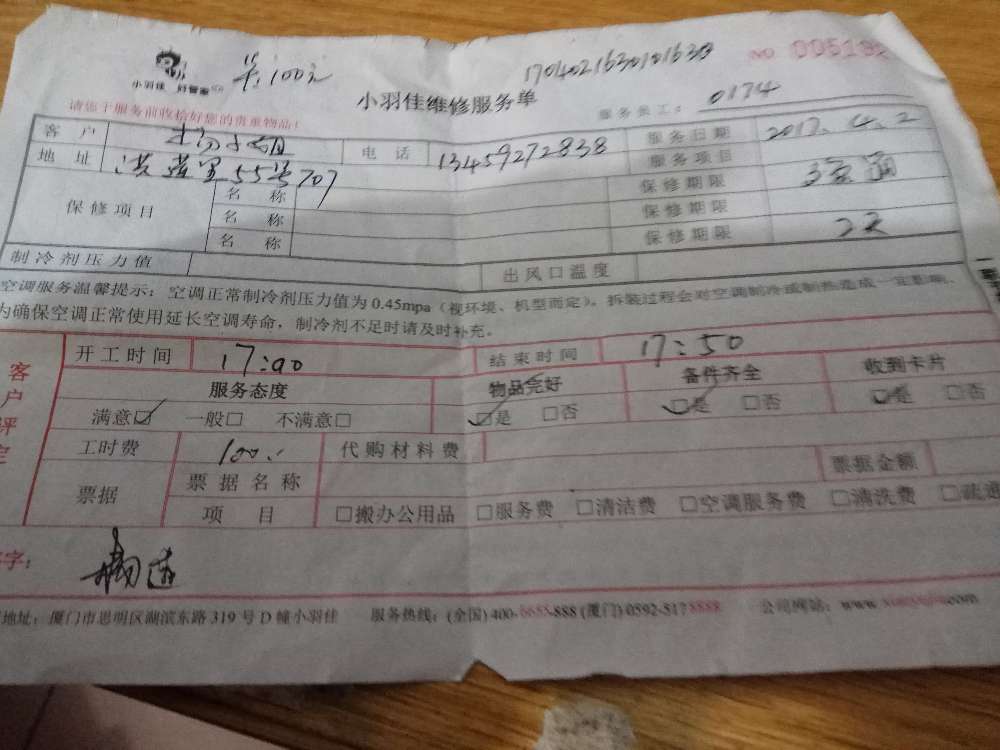 小羽佳 好管家
集100元
1704021630101633
NO 005192
小羽佳维修服务单
服务员工: 0174
请您于服务前收拾好您的贵重物品!
客户 杨小姐 电话 13459272838 服务日期 2017.4.2
地址 洪莲里55号707 服务项目
保修项目 名称 保修期限
名称 保修期限
名称 保修期限 2天
制冷剂压力值 出风口温度
空调服务温馨提示: 空调正常制冷剂压力值为0.45mpa (视环境、机型而定)。拆装过程会对空调制冷或制热造成一定影响,
为确保空调正常使用延长空调寿命, 制冷剂不足时请及时补充。
客户评定
开工时间 17:00 结束时间 17:50
服务态度 物品完好 备件齐全 收到卡片
满意☑ 一般□ 不满意□ ☑是 □否 ☑是 □否 ☑是 □否
工时费 100. 代购材料费
票据 票据名称 票据金额
项目 □搬办公用品 □服务费 □清洁费 □空调服务费 □清洗费 □疏通
字:
地址: 厦门市思明区湖滨东路319号D幢小羽佳 服务热线: (全国) 400-6655-888 (厦门) 0592-5178888 公司网站: